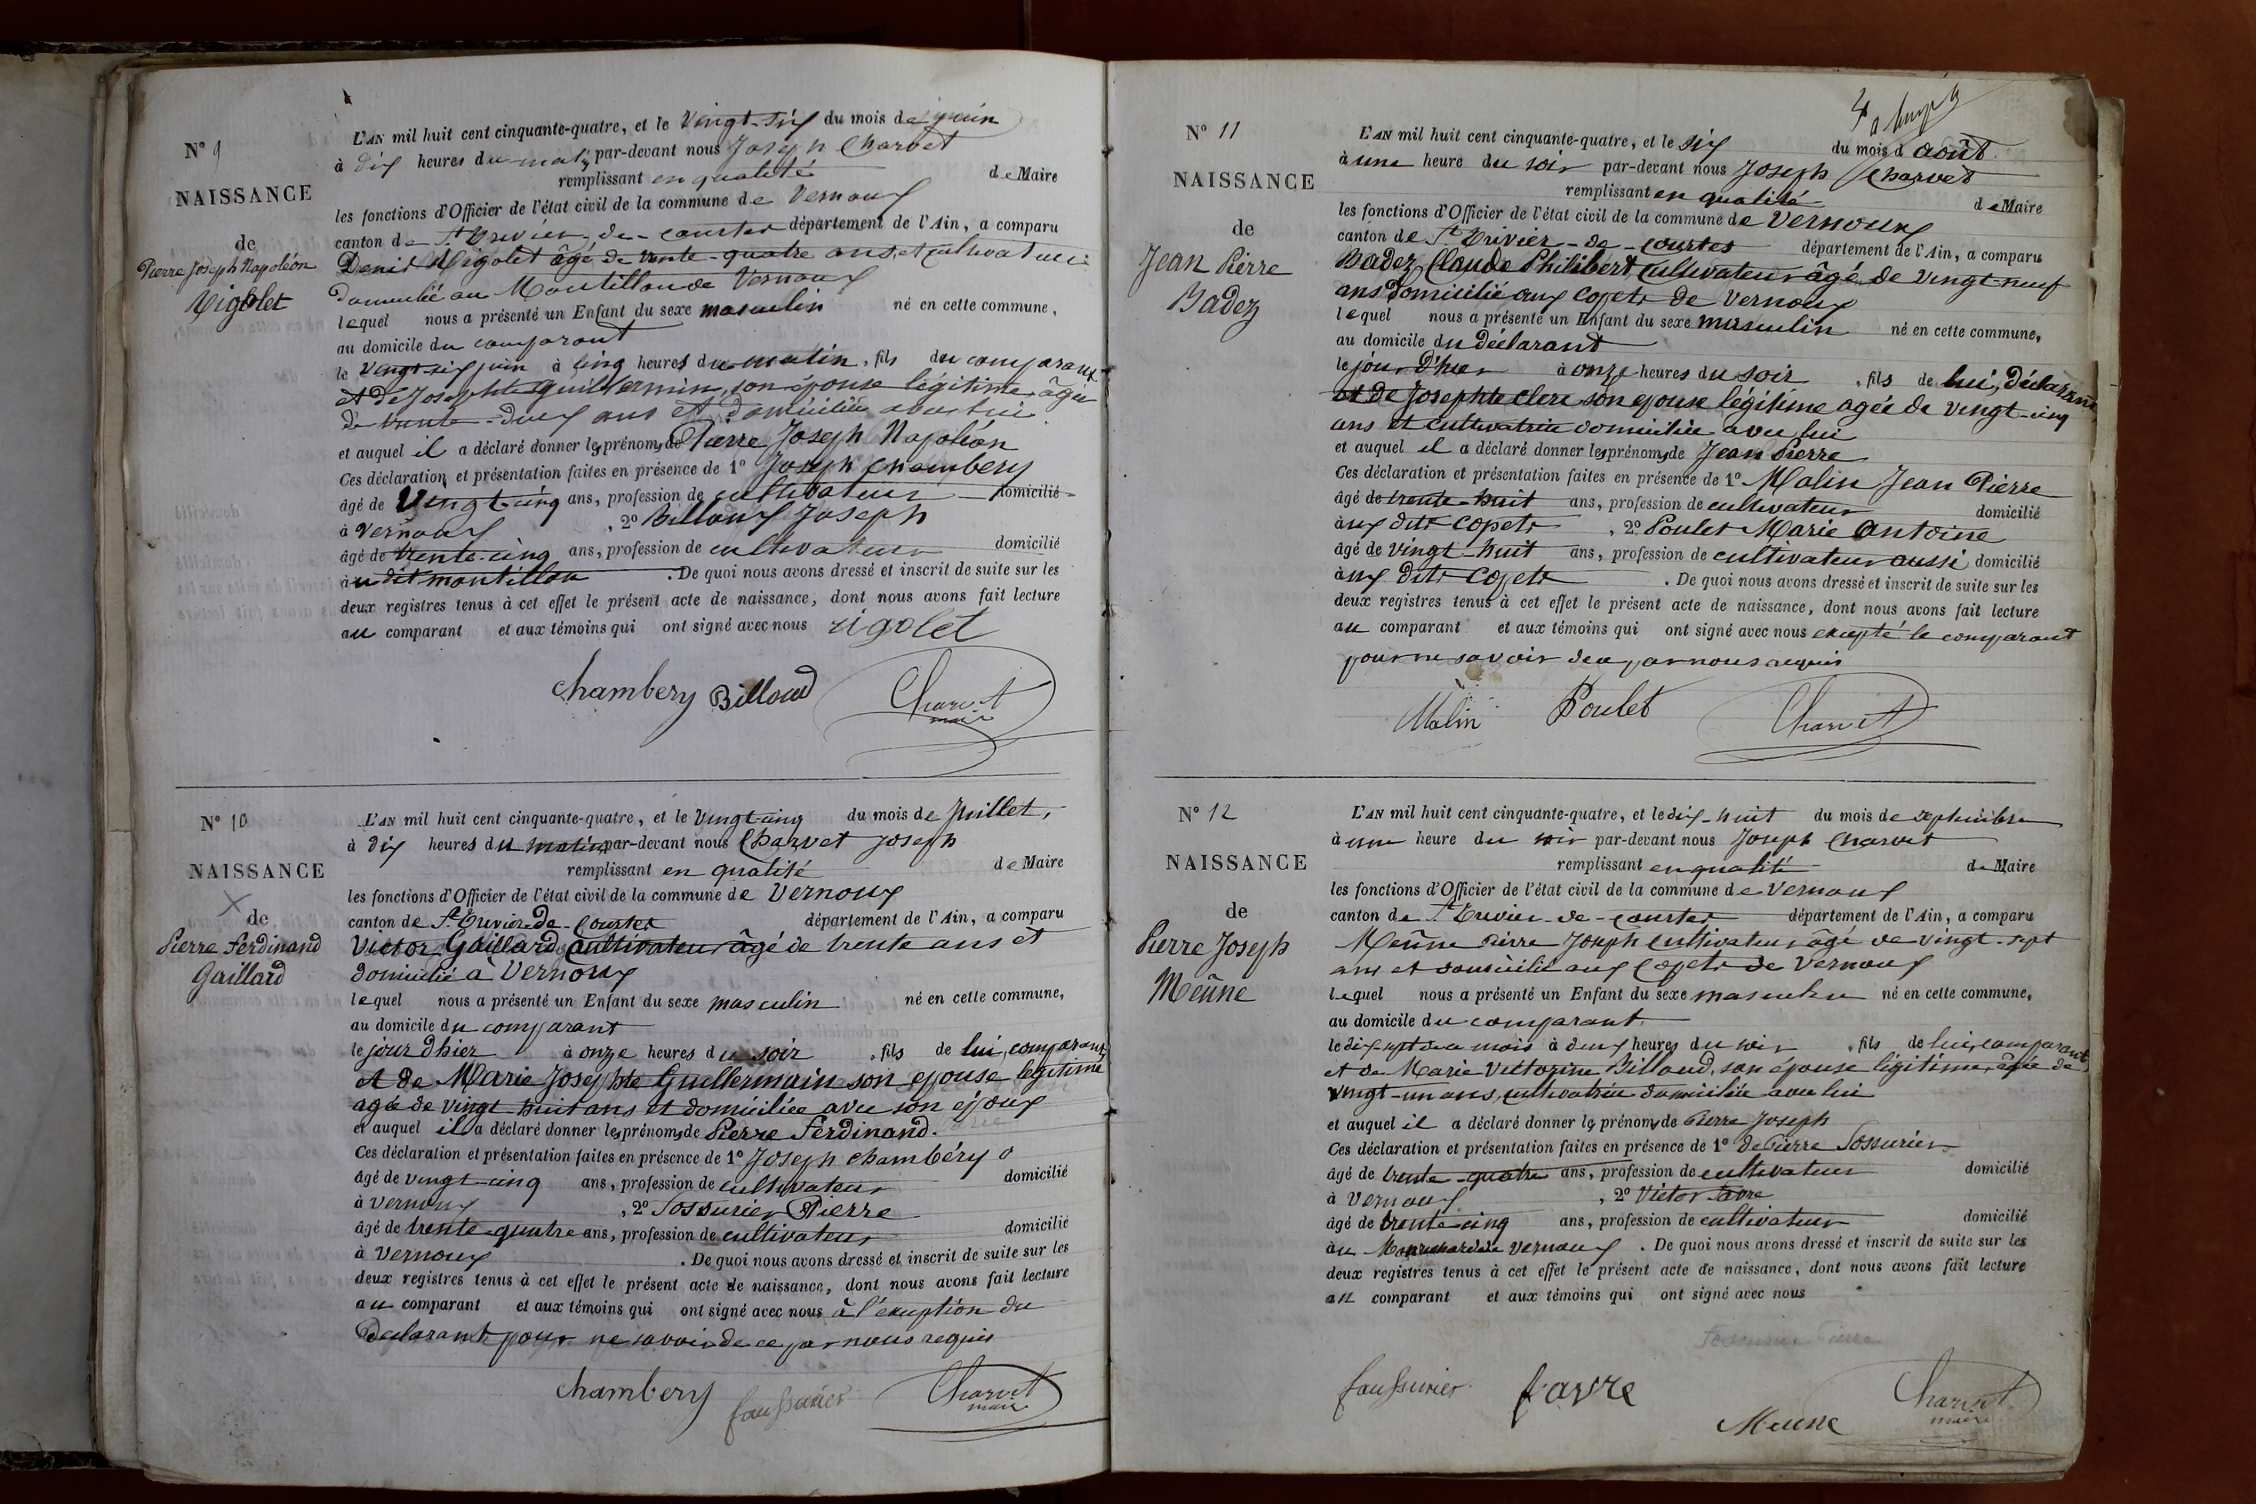 N° 9
NAISSANCE
de
Pierre Joseph Napoléon
Rigolet
L'AN mil huit cent cinquante-quatre, et le vingt-six du mois de juin
à dix heures du matin par-devant nous Joseph Charvet
remplissant en qualité de Maire
les fonctions d'Officier de l'état civil de la commune de Vernoux
canton de St Trivier-de-Courtes département de l'Ain, a comparu
Denis Rigolet âgé de trente-quatre ans et cultivateur
domicilié au Montillon de Vernoux
lequel nous a présenté un Enfant du sexe masculin né en cette commune,
au domicile du comparant
le vingt-six juin à cinq heures du matin, fils du comparant
et de Josephte Guillermin, son épouse légitime, âgée
de trente-deux ans et domiciliée avec lui
et auquel il a déclaré donner les prénoms de Pierre Joseph Napoléon
Ces déclaration et présentation faites en présence de 1° Joseph Chambery
âgé de vingt-cinq ans, profession de cultivateur domicilié
à Vernoux, 2° Billoux Joseph
âgé de trente-cinq ans, profession de cultivateur domicilié
au dit montillon. De quoi nous avons dressé et inscrit de suite sur les
deux registres tenus à cet effet le présent acte de naissance, dont nous avons fait lecture
au comparant et aux témoins qui ont signé avec nous rigolet
Chambery Billoud Charvet
maire
N° 10
NAISSANCE
de
Pierre Ferdinand
Gaillard
L'AN mil huit cent cinquante-quatre, et le vingt-cinq du mois de Juillet,
à dix heures du matin par-devant nous Charvet Joseph
remplissant en qualité de Maire
les fonctions d'Officier de l'état civil de la commune de Vernoux
canton de St Trivier-de-Courtes département de l'Ain, a comparu
Victor Gaillard Cultivateur âgé de trente ans et
domicilié à Vernoux
lequel nous a présenté un Enfant du sexe masculin né en cette commune,
au domicile du comparant
le jour d'hier à onze heures du soir, fils de lui, comparant
et de Marie Josephte Guillermain son epouse legitime
agé de vingt-huit ans et domiciliée avec son époux
et auquel il a déclaré donner les prénoms de Pierre Ferdinand.
Ces déclaration et présentation faites en présence de 1° Joseph Chambéry
âgé de vingt-cinq ans, profession de cultivateur domicilié
à Vernoux, 2° Sossurier Pierre
âgé de trente-quatre ans, profession de cultivateur domicilié
à Vernoux. De quoi nous avons dressé et inscrit de suite sur les
deux registres tenus à cet effet le présent acte de naissance, dont nous avons fait lecture
au comparant et aux témoins qui ont signé avec nous à l'exception du
déclarant pour ne savoir de ce par nous requis
Chambery faussurier Charvet
maire
N° 11
NAISSANCE
de
Jean Pierre
Badez
L'AN mil huit cent cinquante-quatre, et le six du mois d août
à une heure du soir par-devant nous Joseph Charvet
remplissant en qualité de Maire
les fonctions d'Officier de l'état civil de la commune de Vernoux
canton de St Trivier-de-Courtes département de l'Ain, a comparu
Badez Claude Philibert cultivateur âgé de vingt-neuf
ans domicilié aux Copets de Vernoux
lequel nous a présenté un Enfant du sexe masculin né en cette commune,
au domicile du déclarant
le jour d'hier à onze heures du soir, fils de lui, déclarant
et de Josephte Clerc son epouse légitime agée de vingt-cinq
ans et cultivatrice domiciliée avec lui
et auquel il a déclaré donner les prénoms de Jean Pierre
Ces déclaration et présentation faites en présence de 1° Malin Jean Pierre
âgé de trente-huit ans, profession de cultivateur domicilié
aux dits Copets, 2° Poulet Marie Antoine
âgé de vingt-huit ans, profession de cultivateur aussi domicilié
aux dits Copets. De quoi nous avons dressé et inscrit de suite sur les
deux registres tenus à cet effet le présent acte de naissance, dont nous avons fait lecture
au comparant et aux témoins qui ont signé avec nous excepté le comparant
pour ne savoir de ce par nous requis
Malin Poulet Charvet
N° 12
NAISSANCE
de
Pierre Joseph
Meûne
L'AN mil huit cent cinquante-quatre, et le dix-huit du mois de septembre
à une heure du soir par-devant nous Joseph Charvet
remplissant en qualité de Maire
les fonctions d'Officier de l'état civil de la commune de Vernoux
canton de St Trivier-de-Courtes département de l'Ain, a comparu
Meûne Pierre Joseph Cultivateur âgé de vingt-sept
ans et domicilié aux Copets de Vernoux
lequel nous a présenté un Enfant du sexe masculin né en cette commune,
au domicile du comparant
le dix-sept de ce mois à deux heures du soir, fils de lui comparant
et de Marie Victorine Billoud, son épouse légitime, âgée de
vingt-un ans, cultivatrice domiciliée avec lui
et auquel il a déclaré donner les prénoms de Pierre Joseph
Ces déclaration et présentation faites en présence de 1° de Pierre Sossurier
âgé de trente-quatre ans, profession de cultivateur domicilié
à Vernoux, 2° Victor Favre
âgé de trente-cinq ans, profession de cultivateur domicilié
au de Vernoux. De quoi nous avons dressé et inscrit de suite sur les
deux registres tenus à cet effet le présent acte de naissance, dont nous avons fait lecture
au comparant et aux témoins qui ont signé avec nous
faussurier favre Meune Charvet
maire